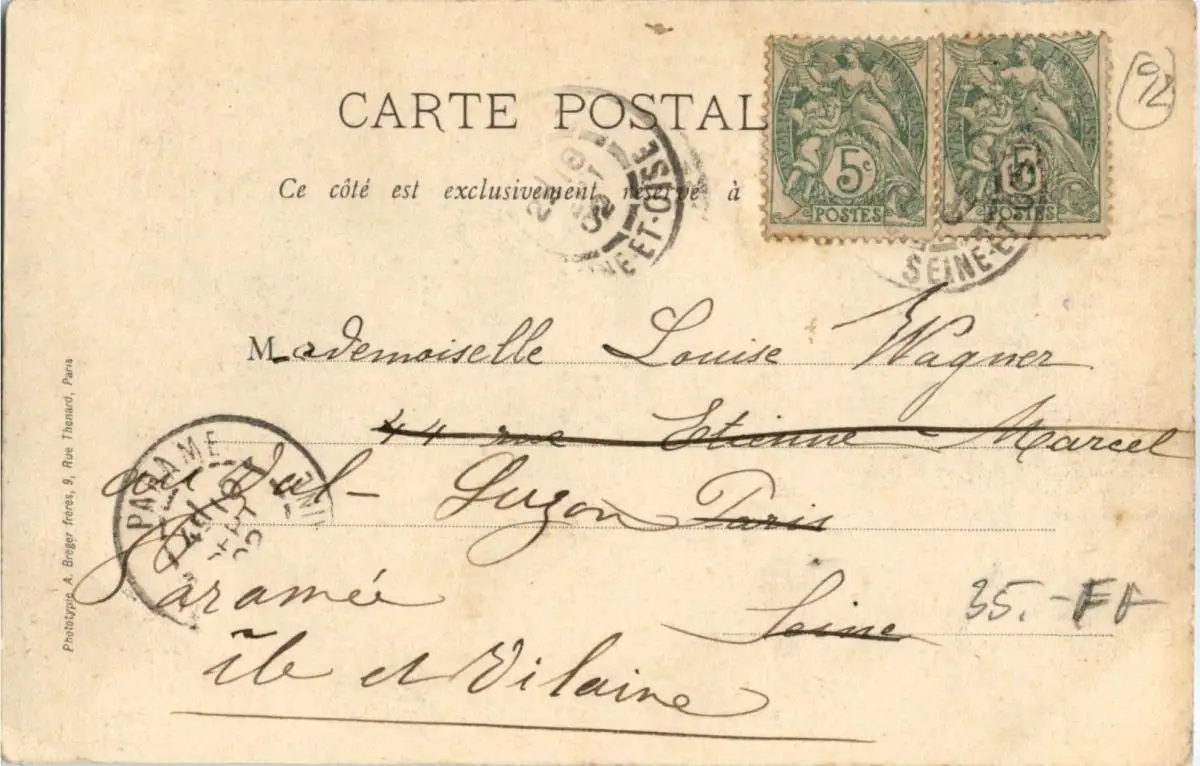 CARTE POSTAL
Ce côté est exclusivement réservé à
5c
POSTES
5
POSTES
SEINE-ET-OISE
SEINE-ET
2
Mademoiselle Louise Wagner
44 rue Etienne Marcel
au Val-Luzon Paris
Paramé
Seine
35.-FF
ile et Vilaine
PARAME
Phototypie A. Breger frères, 9, Rue Thenard, Paris